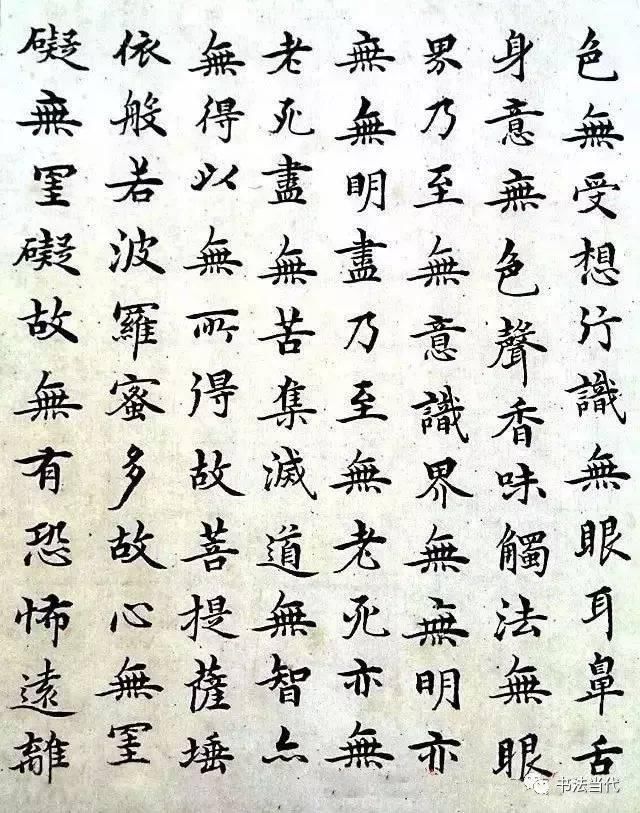 色無受想行識無眼耳鼻舌
身意無色聲香味觸法無眼
界乃至無意識界無無明亦
無無明盡乃至無老死亦無
老死盡無苦集滅道無智亦
無得以無所得故菩提薩埵
依般若波羅蜜多故心無罣
礙無罣礙故無有恐怖遠離
书法当代